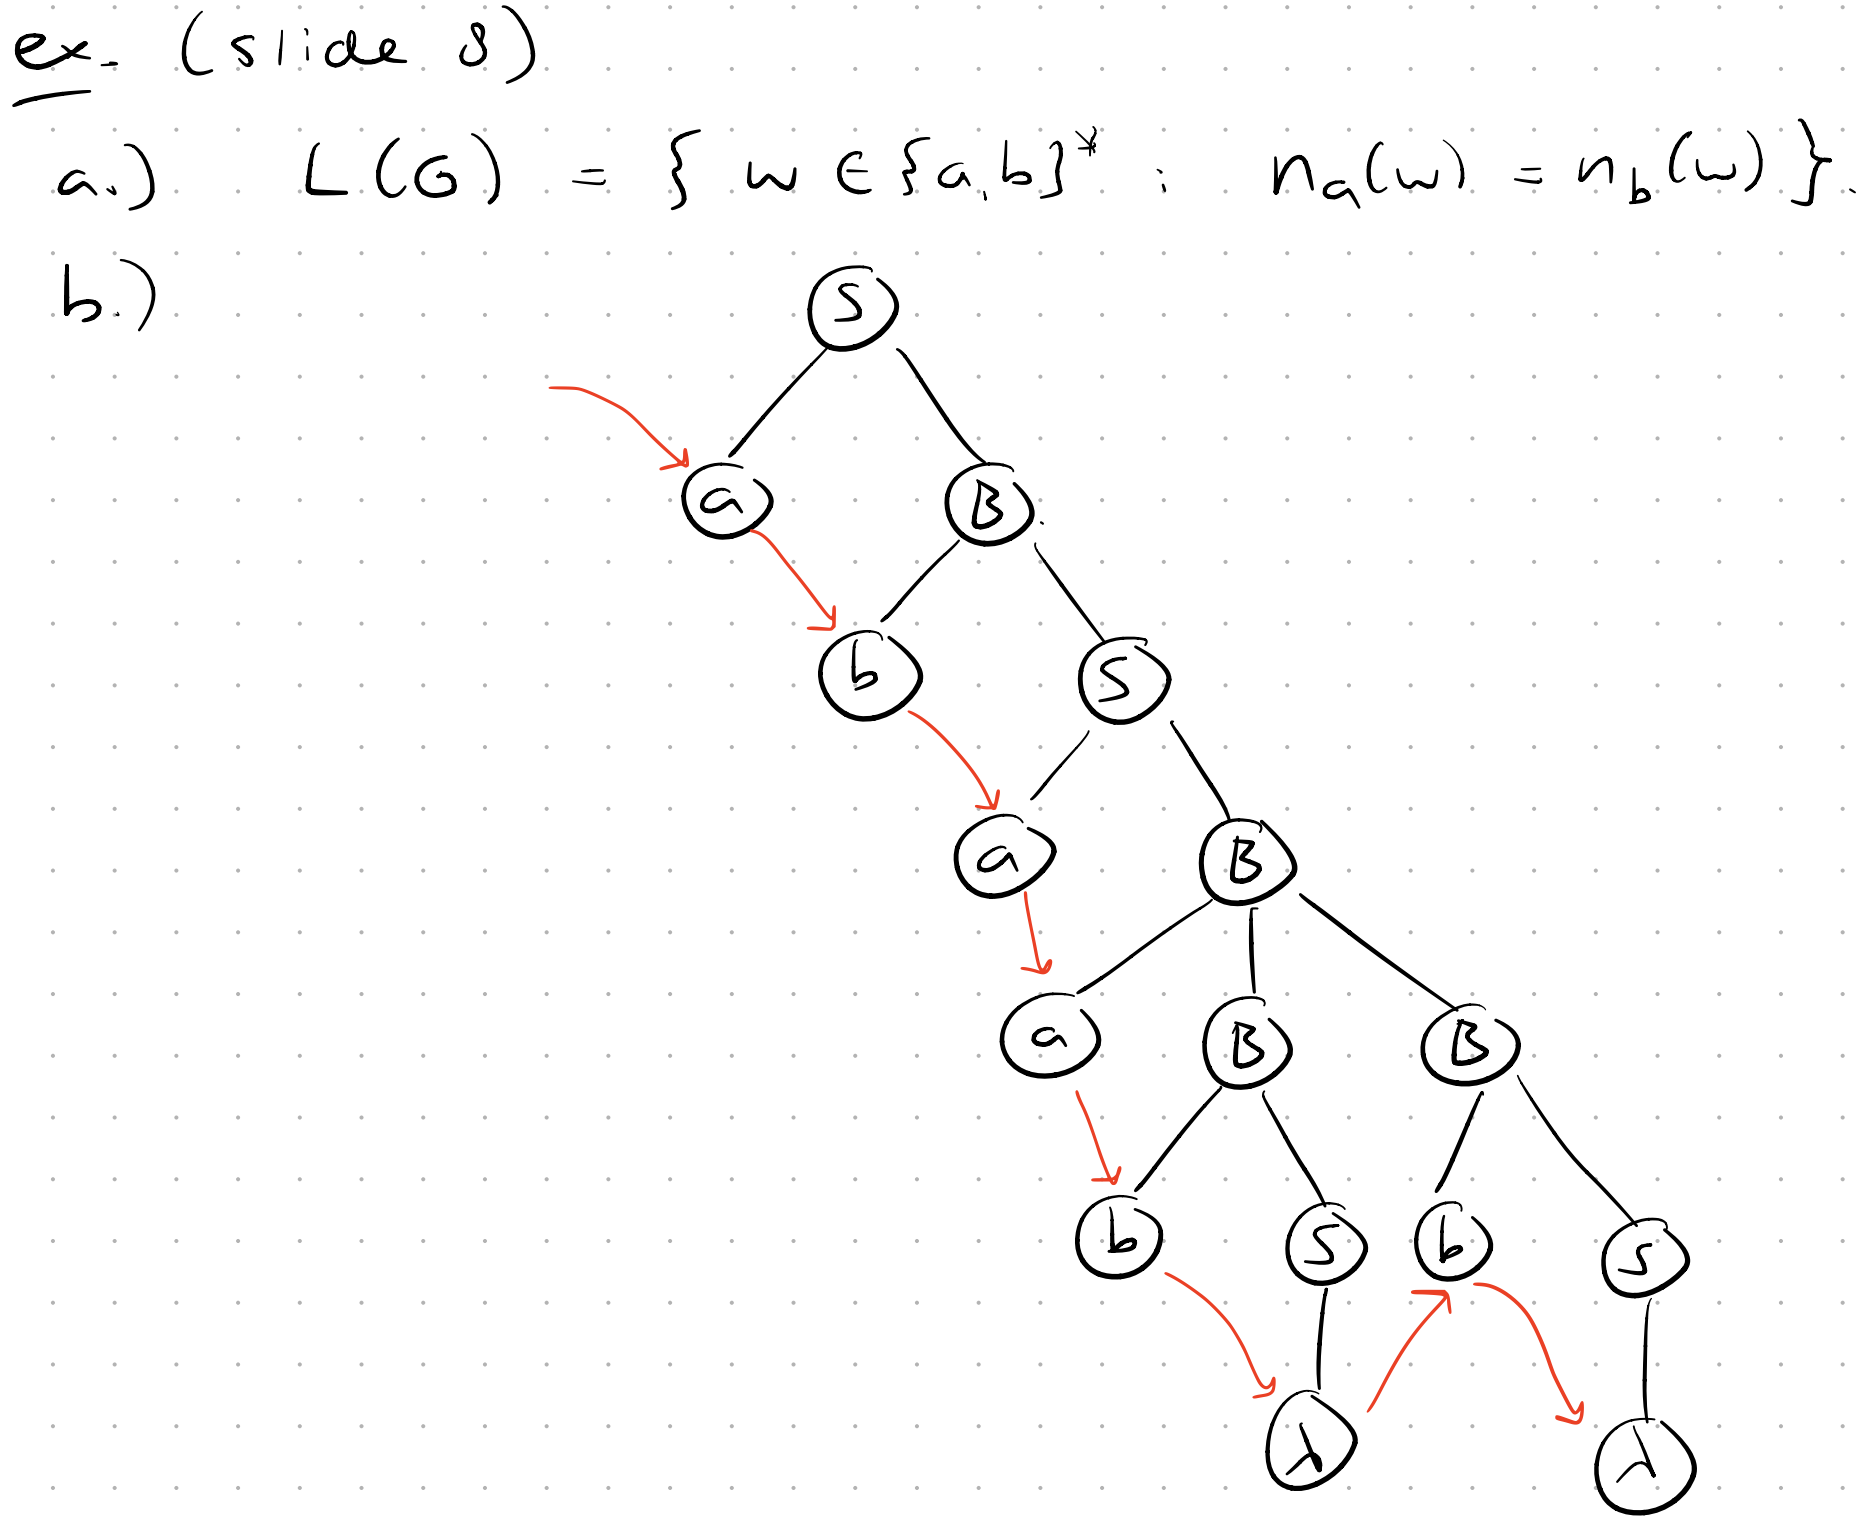 ex. (slide 8)
a.) L(G) = { w ∈ {a,b}* : n_a(w) = n_b(w) }.
b.)
S
a B
b S
a B
a B B
b S b S
λ λ